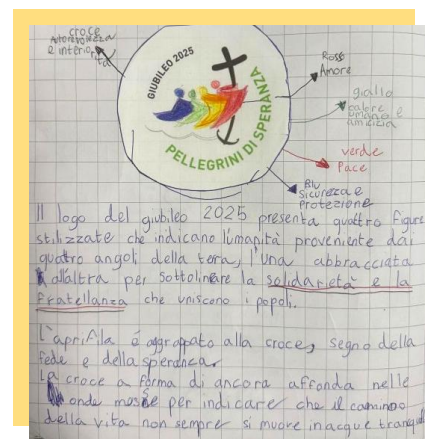 croce
Autorevolezza
e interiorità
GIUBILEO 2025
PELLEGRINI DI SPERANZA
Rosso
Amore
giallo
calore
umano e
amicizia
verde
Pace
Blu
Sicurezza e
Protezione
Il logo del giubileo 2025 presenta quattro figure
stilizzate che indicano l'umanità proveniente dai
quatro angoli della terra, l'una abbracciata
all'altra per sottolineare la solidarietà e la
fratellanza che uniscono i popoli.
L'aprifila é aggrappato alla croce, segno della
fede e della speranca.
La croce a forma di ancora affonda nelle
onde mosse per indicare che il cammino
della vita non sempre si muove in acque tranquille